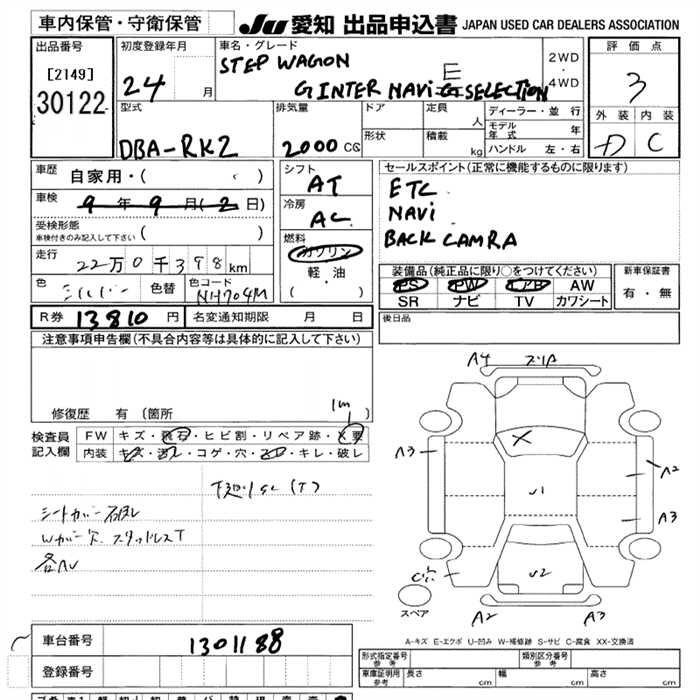 車内保管・守衛保管 JU 愛知 出品申込書 JAPAN USED CAR DEALERS ASSOCIATION
出品番号 初度登録年月 車名・グレード 評価点
[2149] STEP WAGON 2WD
30122 24 月 G INTER NAVI E SELECTION 4WD 3
型式 排気量 ドア 定員 人 ディーラー・並行 外装 内装
モデル年式 年
DBA-RK2 2000 CC 形状 積載 kg ハンドル 左・右 D C
車歴 自家用・( ) シフト AT セールスポイント(正常に機能するものに限ります)
車検 9年9月(2日) 冷房 AC ETC
受検形態 NAVI
車検付きのみ記入して下さい 燃料 BACK CAMRA
走行 22万0千398km ガソリン
軽・油 装備品(純正品に限り○をつけてください) 新車保証書
色 シルバー 色替 色コード NH704M ( ・ ) PS PW エアB AW 有・無
SR ナビ TV カワシート
R券 13810 円 名変通知期限 月 日 後日品
注意事項申告欄(不具合内容等は具体的に記入して下さい)
修復歴 有(箇所 )
検査員 FW キズ・飛石・ヒビ割・リペア跡・X要
記入欄 内装 キズ・汚レ・コゲ・穴・・キレ・破レ
シートカバー破れ
Wカバー欠 スタッドレスT
A4
A3
A2
U1
A3
U2
スペア
A2 A3
A-キズ E-エクボ U-凹み W-補修跡 S-サビ C-腐食 XX-交換済
車台番号 1301188
登録番号
形式指定番号 参考 類別区分番号 参考
車庫証明用 参考 長さ cm 幅 cm 高さ cm